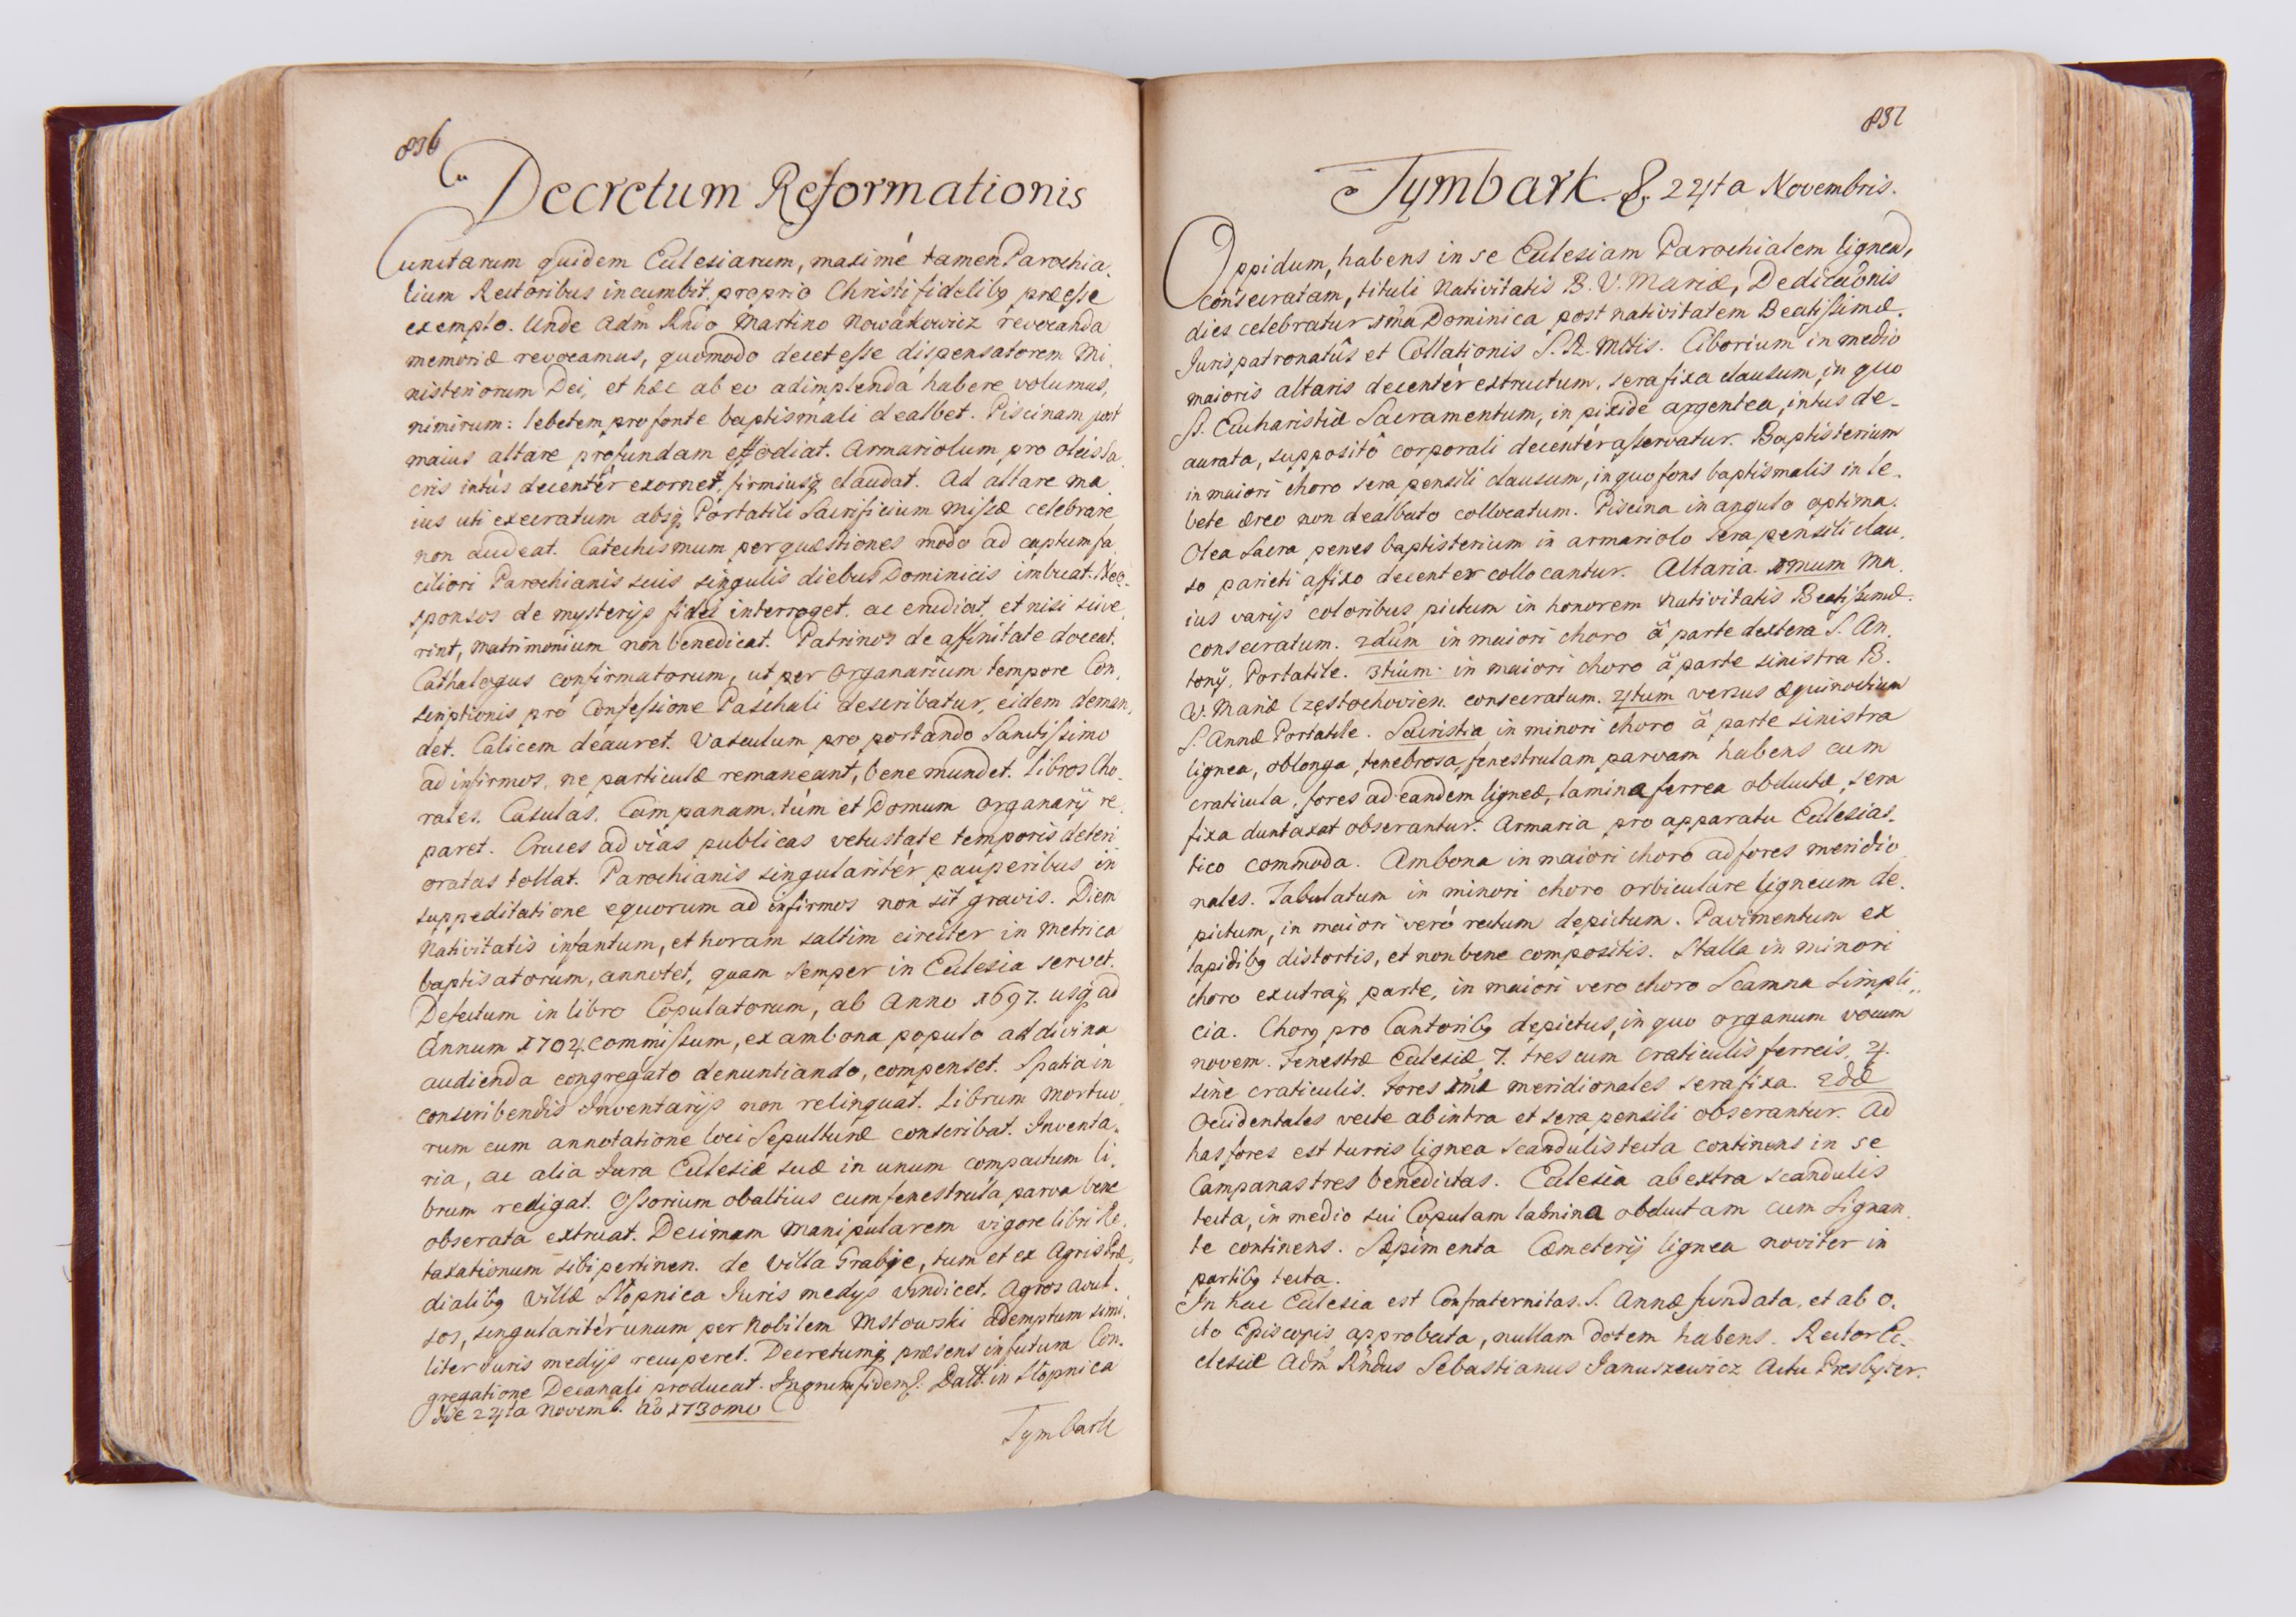 836
Decretum Reformationis
Cunctarum quidem Ecclesiarum, maximé tamen Parochia-
lium Rectoribus incumbit proprio Christi fidelibq præesse
exemplo. Unde Adm Rndo Martino Nowakowicz revocanda
memoriæ revocamus, quomodo decet esse dispensatorem Mi
nisteriorum Dei, et hæc ab eo adimplenda habere volumus,
nimirum: lebetem pro fonte baptismali dealbet. Piscinam post
maius altare profundam effodiat. Armariolum pro oleis sa
cris intús decentér exornet, firmiusq claudat. Ad altare ma
ius uti execratum absq Portatili Sacrificium Missæ celebrare
non audeat. Catechismum per quæstiones modo ad captum fa
ciliori Parochianis suis singulis diebus Dominicis imbuat. Neo
sponsos de mysterijs fidei interroget. ac erudiat, et nisi scive
rint, matrimonium non benedicat. Patrinos de affinitate doceat.
Cathalogus confirmatorum, ut per Organarium tempore Con
scriptionis pro Confessione Paschali describatur, eidem deman
det. Calicem deauret. Vasculum pro portando Sanctissimo
ad infirmos, ne particulæ remaneant, bene mundet. Libros Cho-
rales. Casulas. Campanam. túm et Domum Organarij re
paret. Cruces ad vias publicas vetustate temporis deteri
oratas tollat. Parochianis singularitér pauperibus in
suppeditatione equorum ad infirmos non sit gravis. Diem
Nativitatis infantum, et horam saltim circiter in Metrica
baptisatorum, annotet, quam semper in Ecclesia servet.
Defectum in libro Copulatorum, ab Anno 1697. usq ad
Annum 1704. commissum, ex ambona populo ad divina
audienda congregato denuntiando, compenset. Spatia in
conscribendis Inventarijs non relinquat. Librum Mortuo
rum cum annotatione loci Sepulturæ conscribat. Inventa-
ria, ac alia Jura Ecclesiæ suæ in unum compactum li-
brum redigat. Ossorium obaltius cum fenestrula parva bene
obserata extruat. Decimam manipularem vigore libri Re-
taxationum sibi pertinen. de Villa Grabie, tum et ex Agris Præ
dialibq Villæ Słopnica Juris medijs vindicet. Agros avul-
sos, singularitér unum per Nobilem Mstowski ademptum simi-
liter Juris medijs recuperet. Decretumq præsens in futura Con-
gregatione Decanali producat. In quorum fidem. Datt. in Słopnica
Die 24ta Novemb. Ao 1730mo
Tymbark
837
Tymbark. 8. 24ta Novembris.
Oppidum, habens in se Ecclesiam Parochialem ligneā,
consecratam, tituli Nativitatis B. V. Mariæ, Dedicaonis
dies celebratur 1ma Dominica post nativitatem Beatissimæ.
Juris patronatûs et Collationis S. R. Mttis. Ciborium in medio
maioris altaris decentér extructum, sera fixa clausum, in quo
SS. Eucharistiæ Sacramentum, in pixide argentea, intus de-
aurata, suppositô corporali decentér asservatur. Baptisterium
in maiori choro sera pensili clausum, in quo fons baptismalis in le-
bete æreo non dealbato collocatum. Piscina in angulo optima.
Olea Sacra penes baptisterium in armariolo sera pensili clau-
so parieti affixo decenter collocantur. Altaria. 1mum Ma-
ius varijs coloribus pictum in honorem Nativitatis Beatissimæ.
consecratum. 2dum in maiori choro â parte dextera S. An-
tonij, Portatile. 3tium: in maiori choro â parte sinistra B.
V. Mariæ Częstochovien. consecratum. 4tum versus æquinoctium
S. Annæ Portatile. Sacristia in minori choro â parte sinistra
lignea, oblonga, tenebrosa, fenestrulam parvam habens cum
craticula, fores ad eandem ligneæ, lamina ferrea obductæ, sera
fixa duntaxat obserantur. Armaria pro apparatu Ecclesias-
tico commoda. Ambona in maiori choro ad fores meridio
nales. Tabulatum in minori choro orbiculare ligneum de-
pictum, in maiori veró rectum depictum. Pavimentum ex
lapidibq distortis, et non bene compositis. Stalla in minori
choro ex utraq parte, in maiori vero choro Scamna simpli-
cia. Chorq pro Cantoribq depictus, in quo organum vocum
novem. Fenestræ Ecclesiæ, 7. tres cum craticulis ferreis, 4.
sine craticulis. Fores 1mæ meridionales sera fixa. 2dæ
Occidentales vecte ab intra et sera pensili obserantur. Ad
has fores est turris lignea scandulis tecta continens in se
Campanas tres benedictas. Ecclesia ab extra scandulis
tecta, in medio sui Copulam labmina obductam cum Signan-
te continens. Sæpimenta Cæmeterij lignea noviter in
partibq tecta.
In hac Ecclesia est Confraternitas. S. Annæ fundata, et ab o.
cto Episcopis approbata, nullam dotem habens. Rector Ec-
clesiæ Adm Rndus Sebastianus Januszewicz Actu Presbyter.